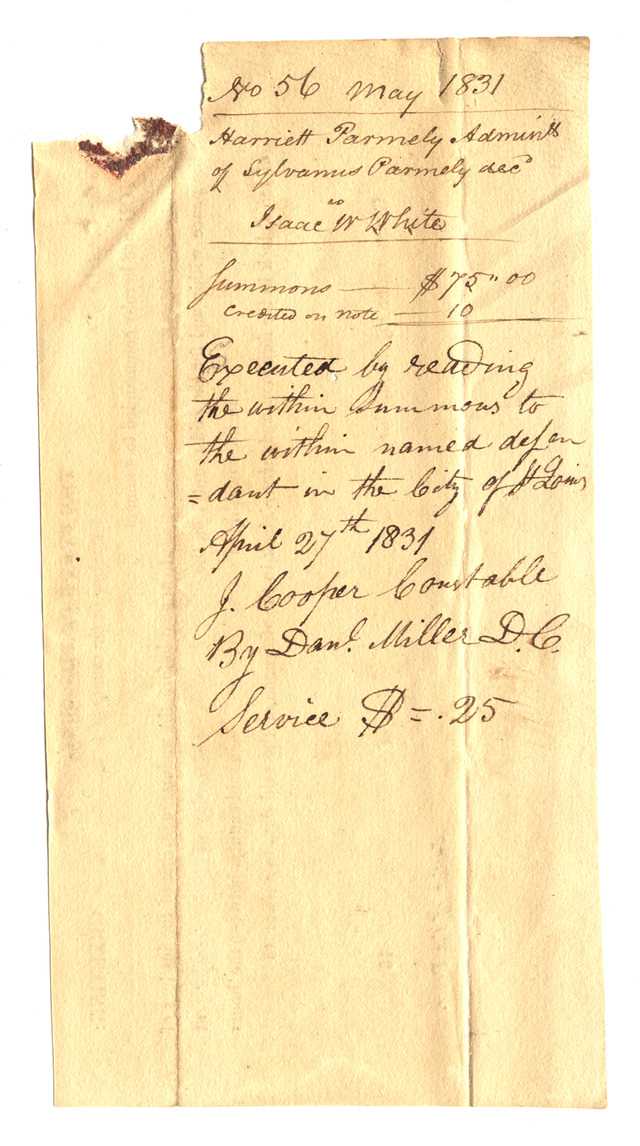 No 56 May 1831
Harriett Parmely Adminis
of Sylvanus Parmely decd
vs
Isaac W White
Summons — $75"00
Credited on note — 10
Executed by reading
the within Summons to
the within named defen
=dant in the City of St Louis
April 27th 1831
J. Cooper Constable
By Danl. Miller D.C.
Service $=.25